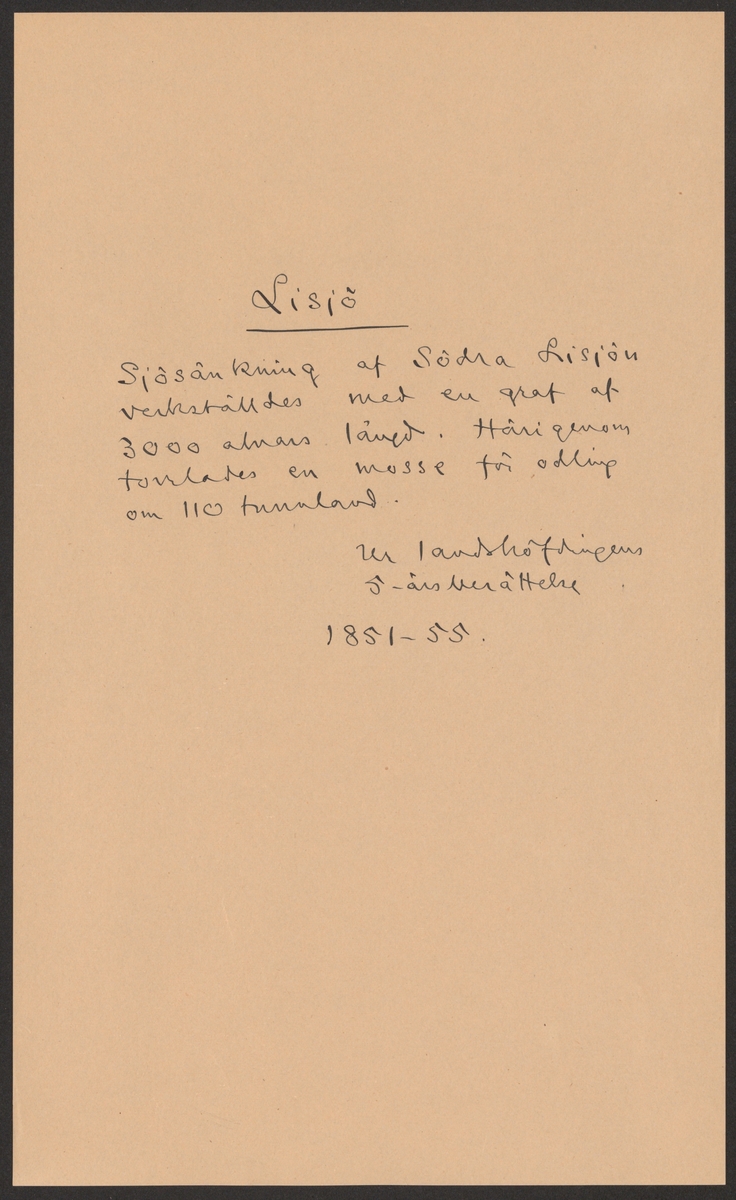 Lisjö
Sjösänkning af Södra Lisjön
verkställdes med en graf af
3000 alnars längd. Härigenom
torrlades en mosse för odling
om 110 tunnland.
Ur landshöfdingens
5-årsberättelse
1851-55.